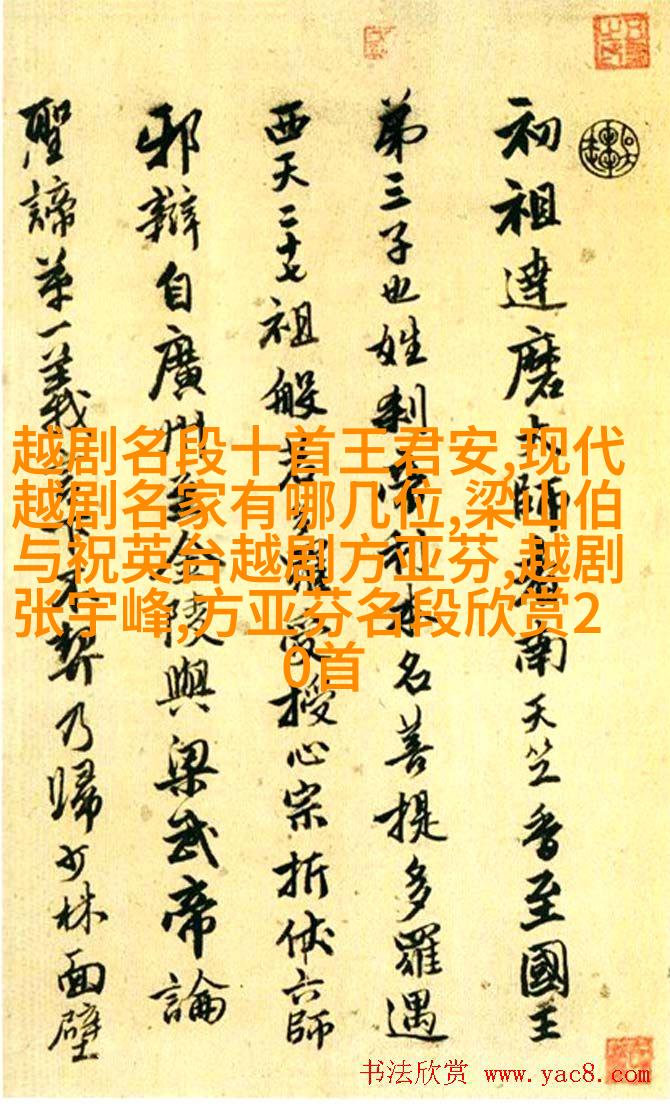 初祖達磨大師南天竺香至國王
第三子也姓刹帝利本名菩提多羅遇
西天二十七祖般若多羅受授心宗折伏六師
邪辯自廣州至金陵與梁武帝論
聖諦第一義不契乃歸少林面壁
越剧名段十首王君安,现代
越剧名家有哪几位,梁山伯
与祝英台越剧方亚芬,越剧
张宇峰,方亚芬名段欣赏2
0首
书法欣赏 www.yac8.com